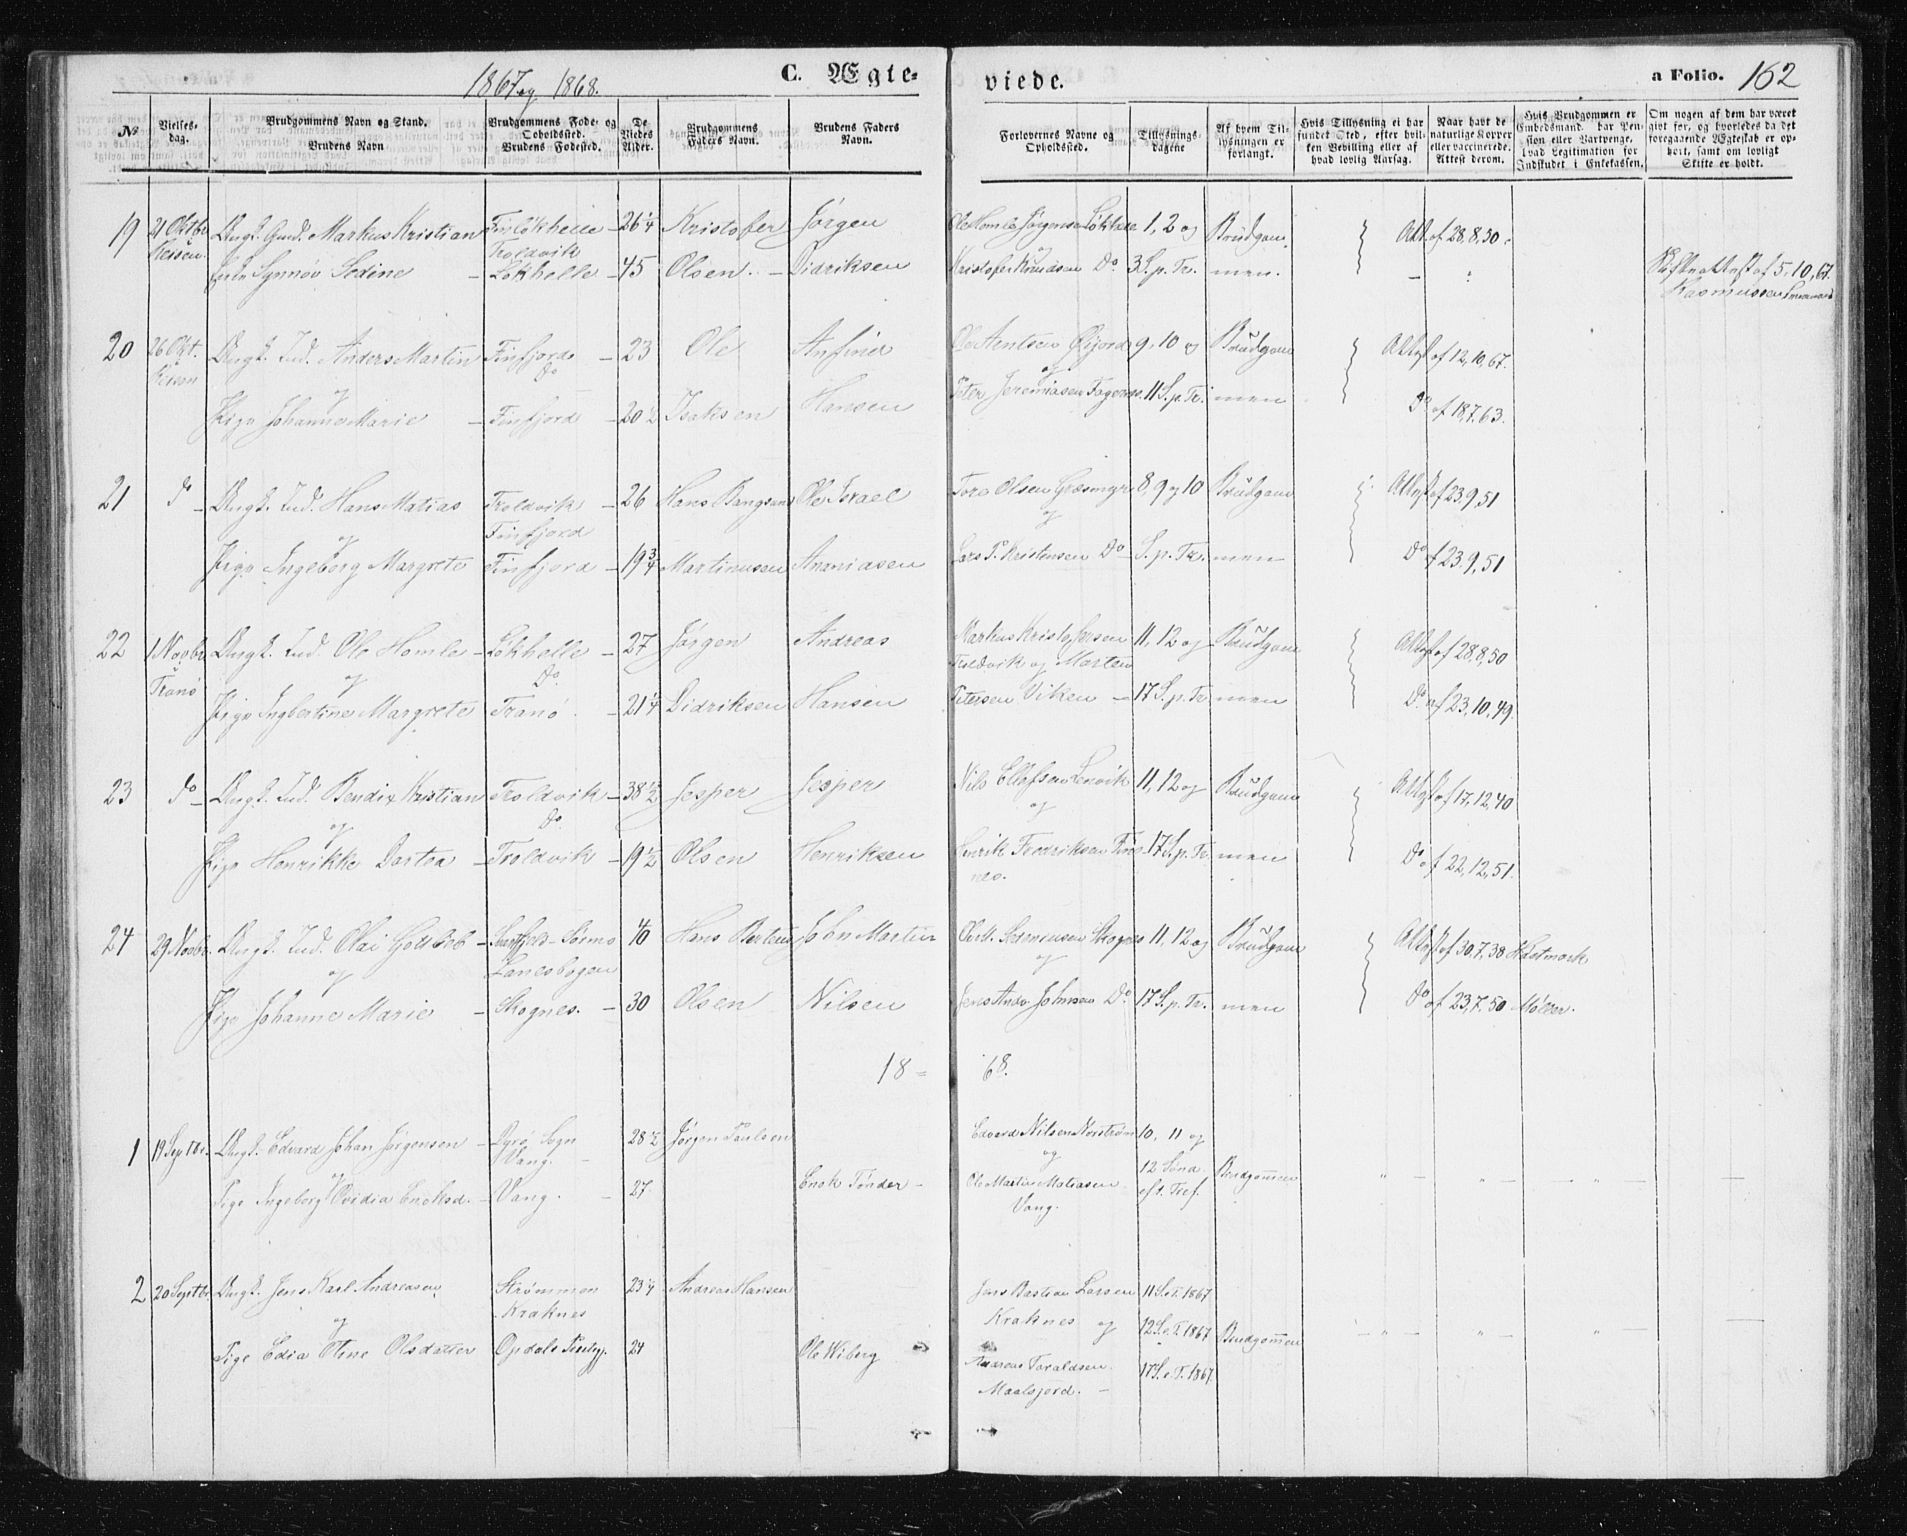 1867 og 1868.
C. Ægte-
viede.
a Folio. 162
№
Vielses-
dag.
Brudgommens Navn og Stand.
Brudens Navn
Brudgommens Føde- og
Opholdssted.
Brudens Fødested.
De
Viedes
Alder.
Brudgommens
Faders Navn.
Brudens Faders
Navn.
Forlovernes Navne og
Opholdssted.
Tillysnings-
dagene
Af hvem Til-
lysningen er
forlangt.
Hvis Tillysning ei har
fundet Sted, efter hvil-
ken Bevilling eller af
hvad lovlig Aarsag.
Naar havt de
naturlige Kopper
eller vaccinerede.
Attest derom.
Hvis Brudgommen er
Embedsmand, har Pen-
sion eller Vartpenge,
hvad Legitimation for
Indskudet i Enkekassen.
Om nogen af dem har været
gift før, og hvorledes da det
foregaaende Ægteskab er op-
hørt, samt om lovligt
Skifte er holdt.
19 21 Oktbr Ungk. Markus Kristian 26 1/4 Kristofer Jørgen Ole Homle Jørgensen Løkhelle 1, 2 og Brudgom- Att. af 28,8,30.
Reisen Troldvik og
Enke Synnøv Sedine - Løkhelle - 45 Olsen. - Didriksen Kristofer Knudsen Do 3 S. p. Tr. men. Skifteattest af 5,10,67.
Rasmussen
20 26 Okt. Ungk. Ind. Anders Martin Finfjord - 23 Ole Anfind Ole Arntsen 9, 10 og Brudgom Attest af 12,10,67.
og Do og
Pige Johanna Marie - Finfjord - 20 1/2 Isaksen Hansen Peter Jeremiasen Fagernes 11 S. p. Tr. men Do af 18,7,63.
21 do Ungk. Ind. Hans Matias Troldvik - 26 Hans Bangsen Ole Israel Tore Olsen Græsmyr 8, 9 og 10 Brudgom Attest af 23,9,51
og Finfjord og
Pige Ingeborg Margrete Finfjord - 19 3/4 Martinusen Ananiasen Lars P. Kristensen Do S. p. Tr. men Do af 23,9,51
22 1 Novbr Ungk. Ind. Ole Homle - Løkhelle - 27 Jørgen Andreas Markus Kristofersen 11, 12 og Brudgom Attest af 28,8,50
Tranø og Do Troldvik og Morten
Pige Ingbertine Margrete Tranø - 21 1/4 Didriksen Hansen Petersen Viken - 17 S. p. Tr. men Do af 23,10,49.
23 do Ungk. Ind. Bendix Kristian Troldvik - 38 1/2 Jesper Jesper Nils Ellefsen Lenvik 11, 12 og Brudgom Attest af 17,12,40
og Do og
Pige Henrikke Dortea - Troldvik - 19 1/2 Olsen Henriksen Henrik Fredriksen Fin- 17 S. p. Tr. men Do af 22,12,51.
nes.
24 29 Novbr. Ungk. Ind. Olai Gotlieb - - Sørmo 40 Hans Berteus John Martin Ole M. Skognes 11, 12 og Brudgom Attest af 30,7,38
og Lanesbogen og
Pige Johanne Marie - Skognes. - 30 Olsen Nilsen Jens Andr. Johnsen Do 17 S. p. Tr. men Do af 23,7,50 Møller.
18 = 68.
1 19 Septbr. Ungk. Edvard Johan Jørgensen - Dyrø Sogn 28 1/2 Jørgen Paulsen Edvard Nilsen Norstrøm 10, 11 og
og Vang. og
Pige Ingeborg Ovidia Enoksd. - Vang. - 27 Enok Tønder - Ole Martin Matiasen 12 Sønd. Brudgommen
Vang. eft. Tref.
2 20 Septbr. Ungk. Jens Karl Andreasen Strømmen 23 1/4 Andreas Hansen Jens Bastian Larsen 11 S. e. T. 1867
og Kraknes Kraknes og 12 S. e. T. 1867 Brudgommen
Pige Edia Oline Olsdatter Opdals 24 Ole Wiberg Andreas Toraldsen 17 S. e. T. 1867.
Maalsjord. -